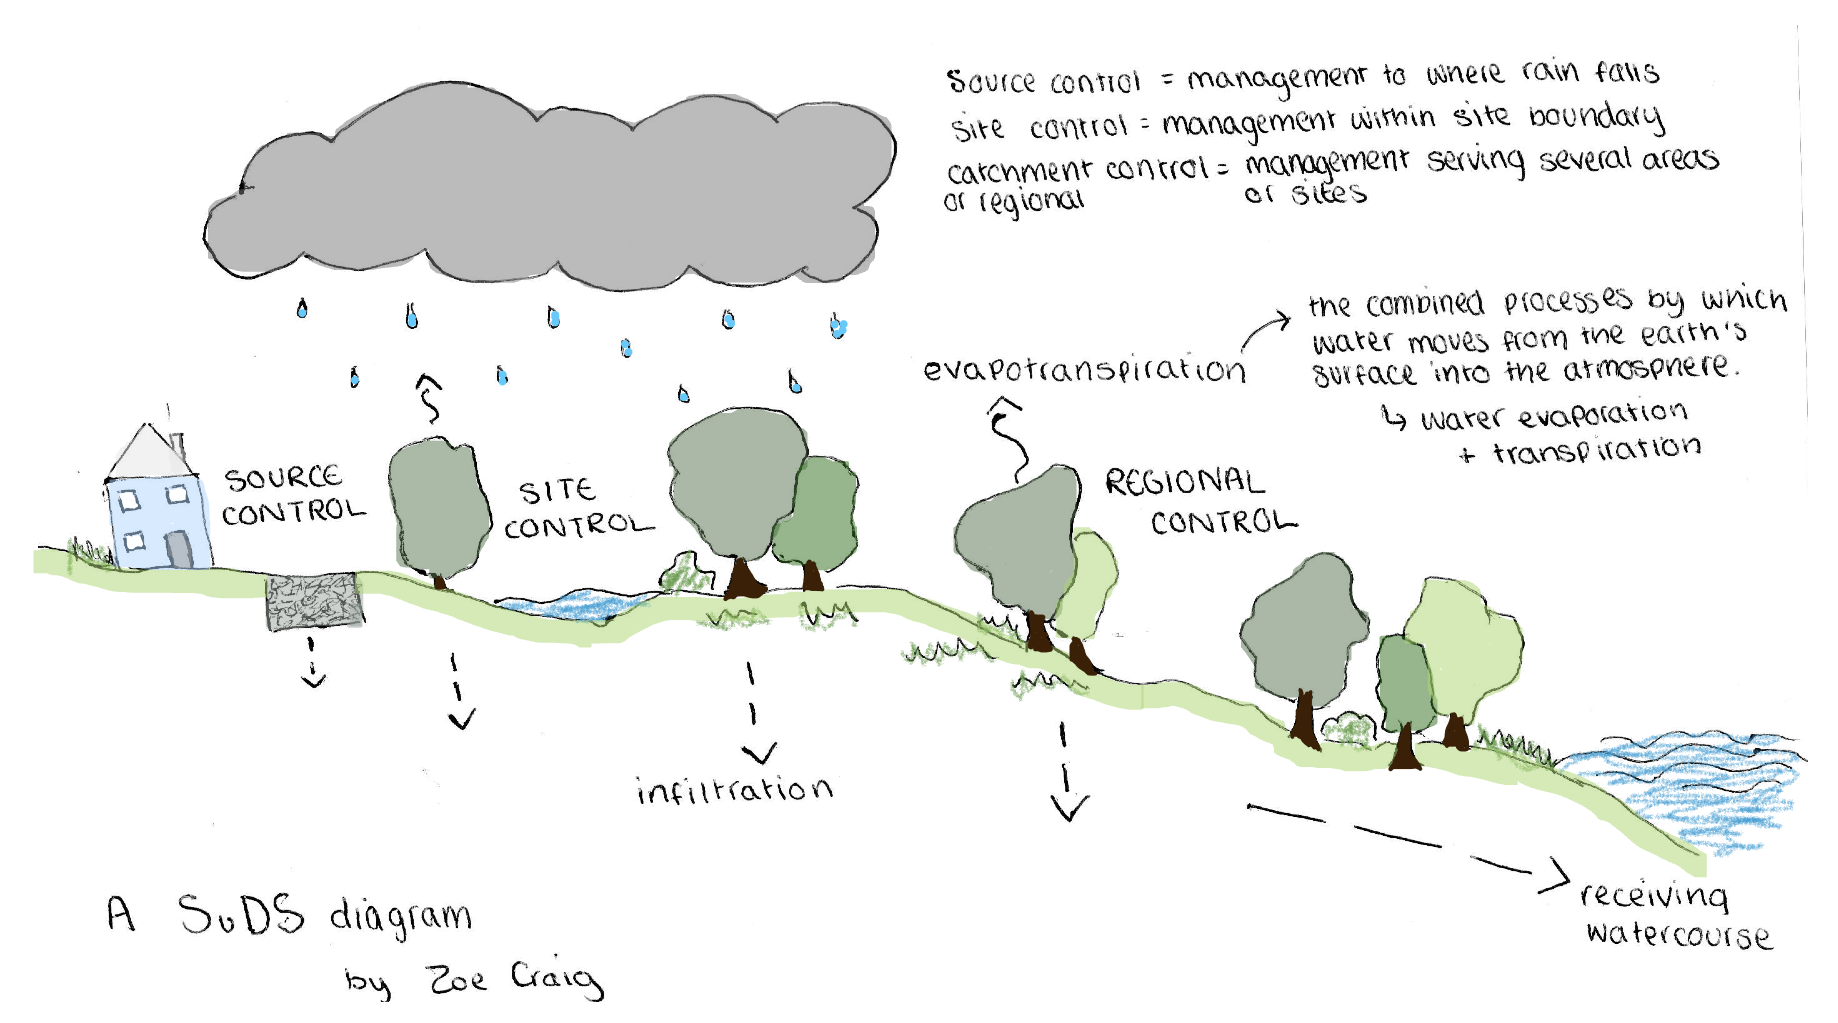 Source control = management to where rain falls
site control = management within site boundary
catchment control = management serving several areas
or regional or sites
evapotranspiration
the combined processes by which
water moves from the earth's
surface into the atmosphere.
↳ water evaporation
+ transpiration
SOURCE
CONTROL
SITE
CONTROL
REGIONAL
CONTROL
infiltration
receiving
watercourse
A SuDS diagram
by Zoe Craig